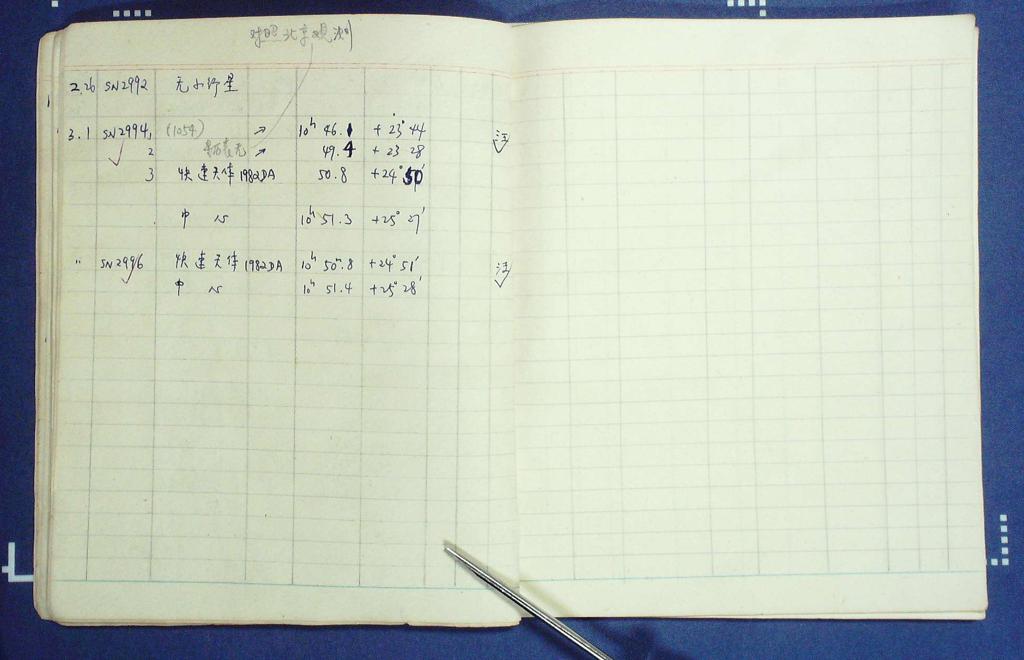 对照北京观测
2.26 SN2992 无小行星
3.1 SN2994 1 (1054) → 10ʰ 46.1 +23° 44 注
2 → 49.4 +23 28
3 快速天体 1982DA 50.8 +24° 50'
中心 10ʰ 51.3 +25° 27'
" SN2996 快速天体 1982DA 10ʰ 50ᵐ.8 +24° 51' 注
中心 10ʰ 51.4 +25° 28'